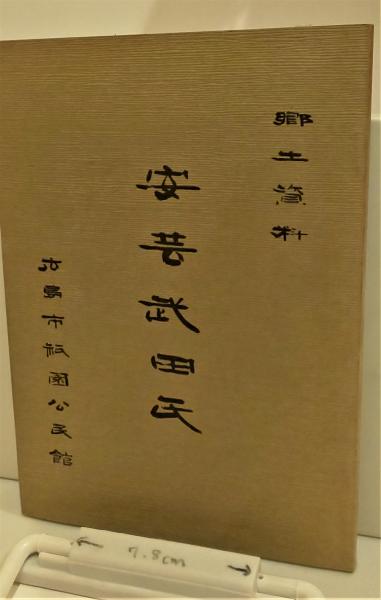 郷土資料
安芸武田氏
広島市祇園公民館
← 7.8cm →